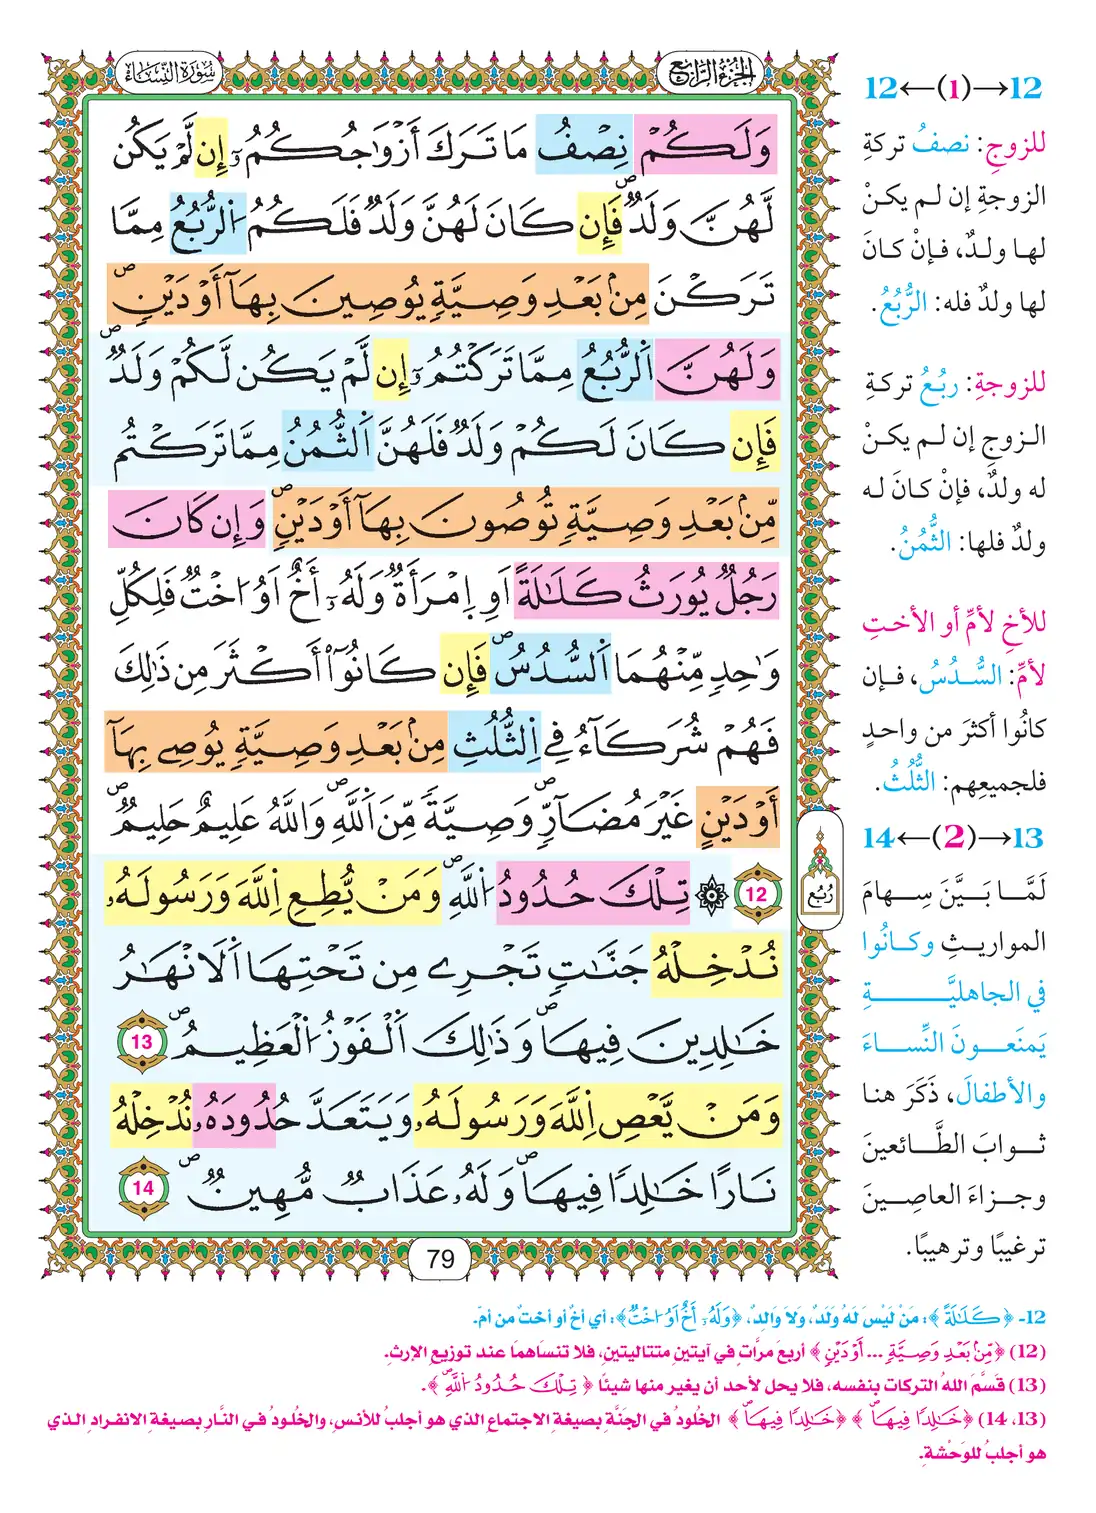 سُورَةُ النِّسَاءِ
الجُزْءُ الرَّابِعُ
وَلَكُمْ نِصْفُ مَا تَرَكَ أَزْوَٰجُكُمُۥٓ إِن لَّمْ يَكُن
لَّهُنَّ وَلَدٌ فَإِن كَانَ لَهُنَّ وَلَدٌ فَلَكُمُ اُلرُّبُعُ مِمَّا
تَرَكْنَ مِنۢ بَعْدِ وَصِيَّةٍ يُوصِينَ بِهَآ أَوْ دَيْنٍ
وَلَهُنَّ اَلرُّبُعُ مِمَّا تَرَكْتُمُۥٓ إِن لَّمْ يَكُن لَّكُمْ وَلَدٌ
فَإِن كَانَ لَكُمْ وَلَدٌ فَلَهُنَّ اَلثُّمُنُ مِمَّا تَرَكْتُم
مِّنۢ بَعْدِ وَصِيَّةٍ تُوصُونَ بِهَآ أَوْ دَيْنٍ وَإِن كَانَ
رَجُلٌ يُورَثُ كَلَٰلَةً اَوِ اِمْرَأَةٌ وَلَهُۥٓ أَخٌ اَوُ اخْتٌ فَلِكُلِّ
وَٰحِدٍ مِّنْهُمَا اَلسُّدُسُ فَإِن كَانُوٓاْ أَكْثَرَ مِن ذَٰلِكَ
فَهُمْ شُرَكَآءُ فِي اِلثُّلُثِ مِنۢ بَعْدِ وَصِيَّةٍ يُوصِے بِهَآ
أَوْ دَيْنٍ غَيْرَ مُضَآرٍّ وَصِيَّةً مِّنَ اَللَّهِ وَاللَّهُ عَلِيمٌ حَلِيمٌ
12 ۞ تِلْكَ حُدُودُ اُللَّهِ وَمَنْ يُّطِعِ اِللَّهَ وَرَسُولَهُۥ
نُدْخِلْهُ جَنَّٰتٍ تَجْرِے مِن تَحْتِهَا اَلَانْهَٰرُ
خَٰلِدِينَ فِيهَا وَذَٰلِكَ اَلْفَوْزُ اُلْعَظِيمُ 13
وَمَنْ يَّعْصِ اِللَّهَ وَرَسُولَهُۥ وَيَتَعَدَّ حُدُودَهُۥ نُدْخِلْهُ
نَارًا خَٰلِدًا فِيهَا وَلَهُۥ عَذَابٌ مُّهِينٌ 14
رُبُع
79
12←(1)→12
للزوجِ: نصفُ تركةِ
الزوجةِ إن لم يكنْ
لها ولدٌ، فإنْ كانَ
لها ولدٌ فله: الرُّبُعُ.
للزوجةِ: ربُعُ تركةِ
الزوجِ إن لم يكنْ
له ولدٌ، فإنْ كانَ له
ولدٌ فلها: الثُّمُنُ.
للأخِ لأمِّ أو الأختِ
لأمِّ: السُّدُسُ، فإن
كانُوا أكثرَ من واحدٍ
فلجميعِهم: الثُّلُثُ.
14←(2)→13
لَمَّا بَيَّنَ سِهامَ
المواريثِ وكانُوا
في الجاهليَّةِ
يَمنَعونَ النِّساءَ
والأطفالَ، ذَكَرَ هنا
ثوابَ الطَّائعينَ
وجزاءَ العاصِينَ
ترغيبًا وترهيبًا.
12- ﴿كَلَٰلَةً﴾: مَنْ لَيْسَ لَهُ وَلَدٌ، وَلاَ وَالِدٌ، ﴿وَلَهُۥٓ أَخٌ اَوُ اخْتٌ﴾: أي أخٌ أو أختٌ من أمّ.
(12) ﴿مِّنۢ بَعْدِ وَصِيَّةٍ ... أَوْ دَيْنٍ﴾ أربعَ مرَّاتٍ في آيتين متتاليتين، فلا تنساهمَا عند توزيع الإرث.
(13) قَسَّمَ اللهُ التركات بنفسه، فلا يحل لأحد أن يغير منها شيئًا ﴿تِلْكَ حُدُودُ اُللَّهِ﴾.
(13، 14) ﴿خَٰلِدًا فِيهَا﴾ ﴿خَٰلِدًا فِيهَا﴾ الخلودُ في الجَنَّة بصيغة الاجتماع الذي هو أجلبُ للأنس، والخُلودُ في النَّار بصيغة الانفراد الذي
هو أجلبُ للوَحْشة.